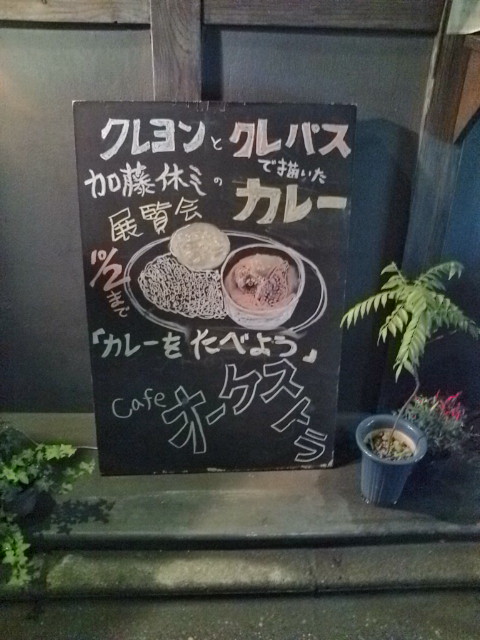 クレヨンとクレパス
で描いた
加藤休ミの カレー
展覧会
10/2まで
「カレーをたべよう」
Cafe オーケストラ